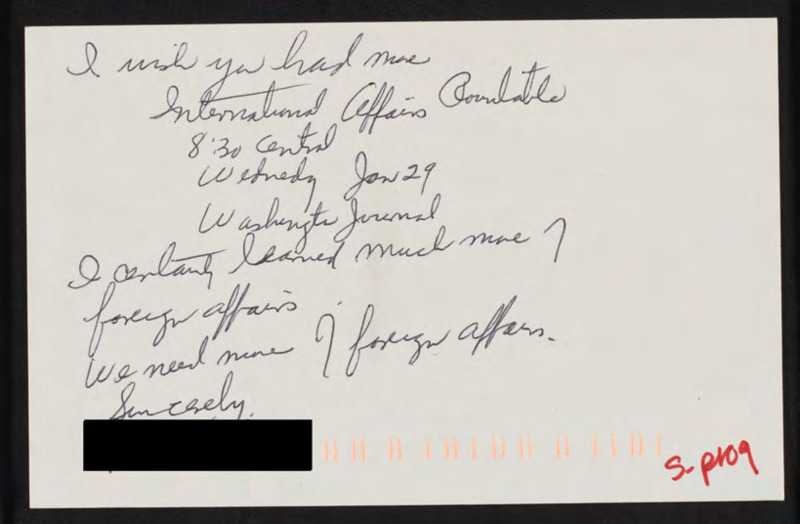 I wish you had more
International Affairs Roundtable
8:30 Central
Wednedy Jan 29
Washington Journal
I certainly learned much more of
foreign affairs.
We need more of foreign affairs.
Sincerely,
S-prog